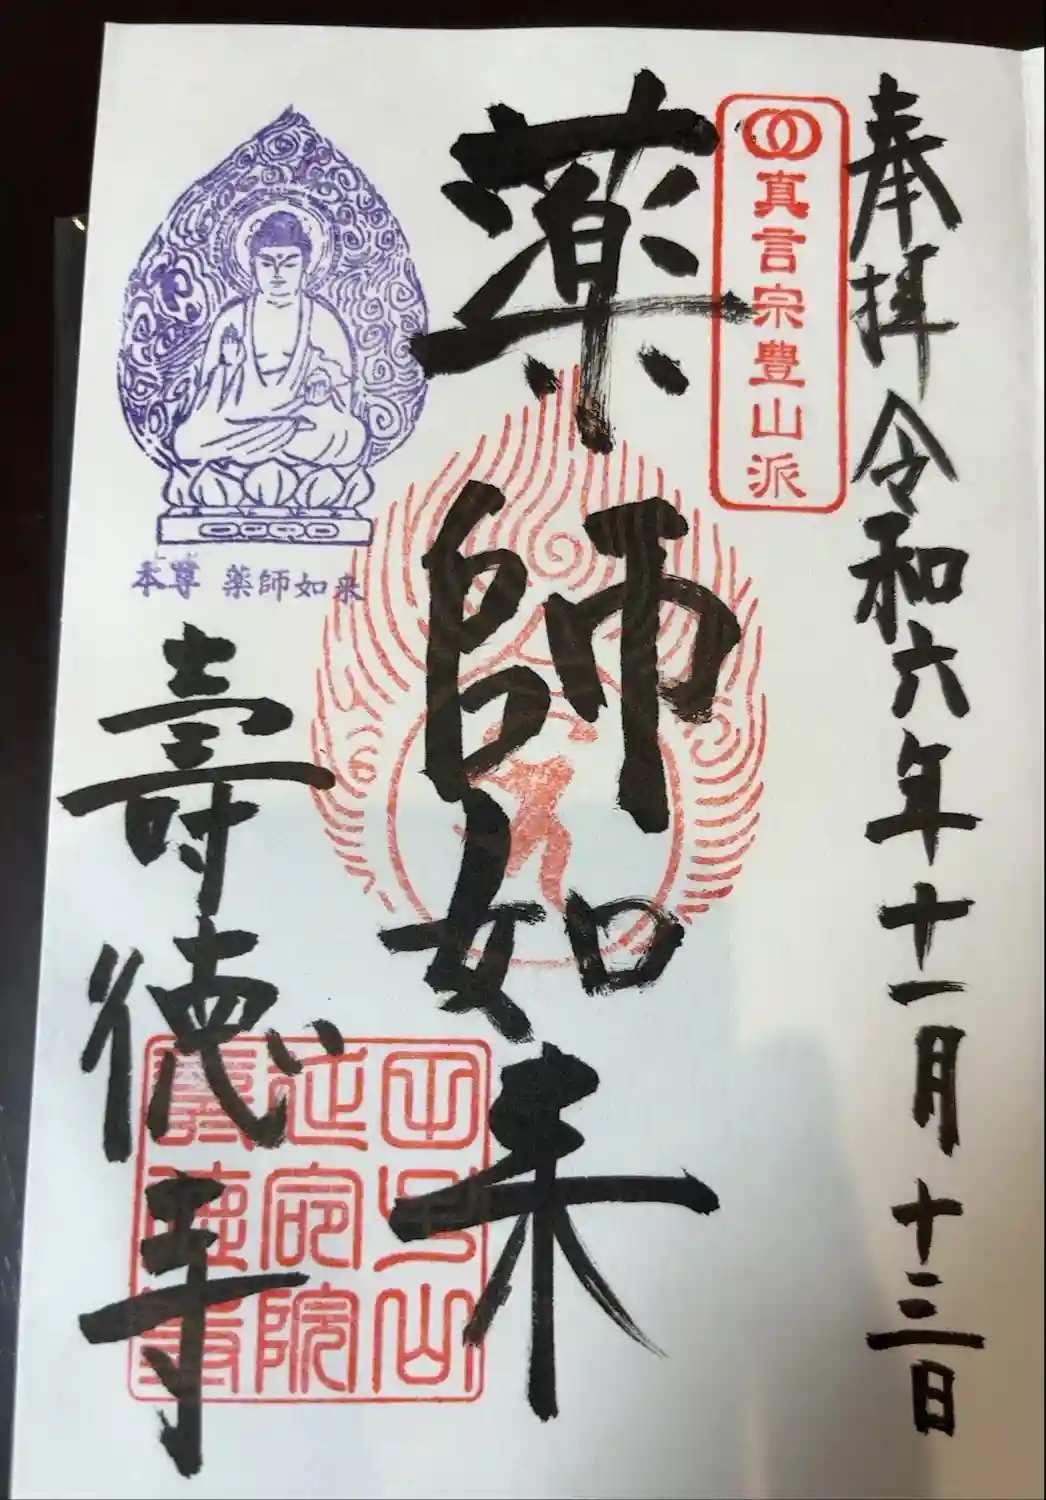 奉拝 令和六年十一月十三日
真言宗豊山派
薬師如来
本尊 薬師如来
壽徳寺
延命院
壽徳寺